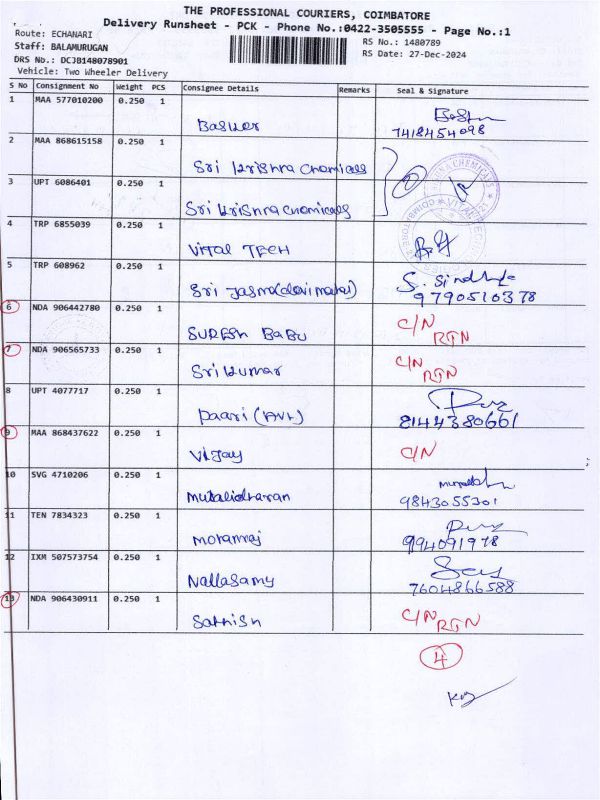 THE PROFESSIONAL COURIERS, COIMBATORE
Delivery Runsheet - PCK - Phone No.:0422-3505555 - Page No.:1
Route: ECHANARI
RS No.: 1480789
Staff: BALAMURUGAN
RS Date: 27-Dec-2024
DRS No.: DCJB148078901
Vehicle: Two Wheeler Delivery
S No Consignment No Weight PCS Consignee Details Remarks Seal & Signature
1 MAA 577010200 0.250 1 Basker 7418454098
2 MAA 868615158 0.250 1 Sri Krishna Chemicals
3 UPT 6086401 0.250 1 Sri Krishna Chemicals
4 TRP 6855039 0.250 1 VITal TECH
5 TRP 608962 0.250 1 Sri Jasma(devi mahal) S. Sindhuja 9790510378
6 NDA 906442780 0.250 1 SURESH BaBU C/N RTN
7 NDA 906565733 0.250 1 Srikumar C/N RTN
8 UPT 4077717 0.250 1 Paari (AVL) 8144380661
9 MAA 868437622 0.250 1 Vijay C/N
10 SVG 4710206 0.250 1 Muralidharan 9843055301
11 TEN 7834323 0.250 1 Mohanraj 994091978
12 IXM 507573754 0.250 1 Nallasamy 7604866588
13 NDA 906430911 0.250 1 Sathish C/N RTN
4